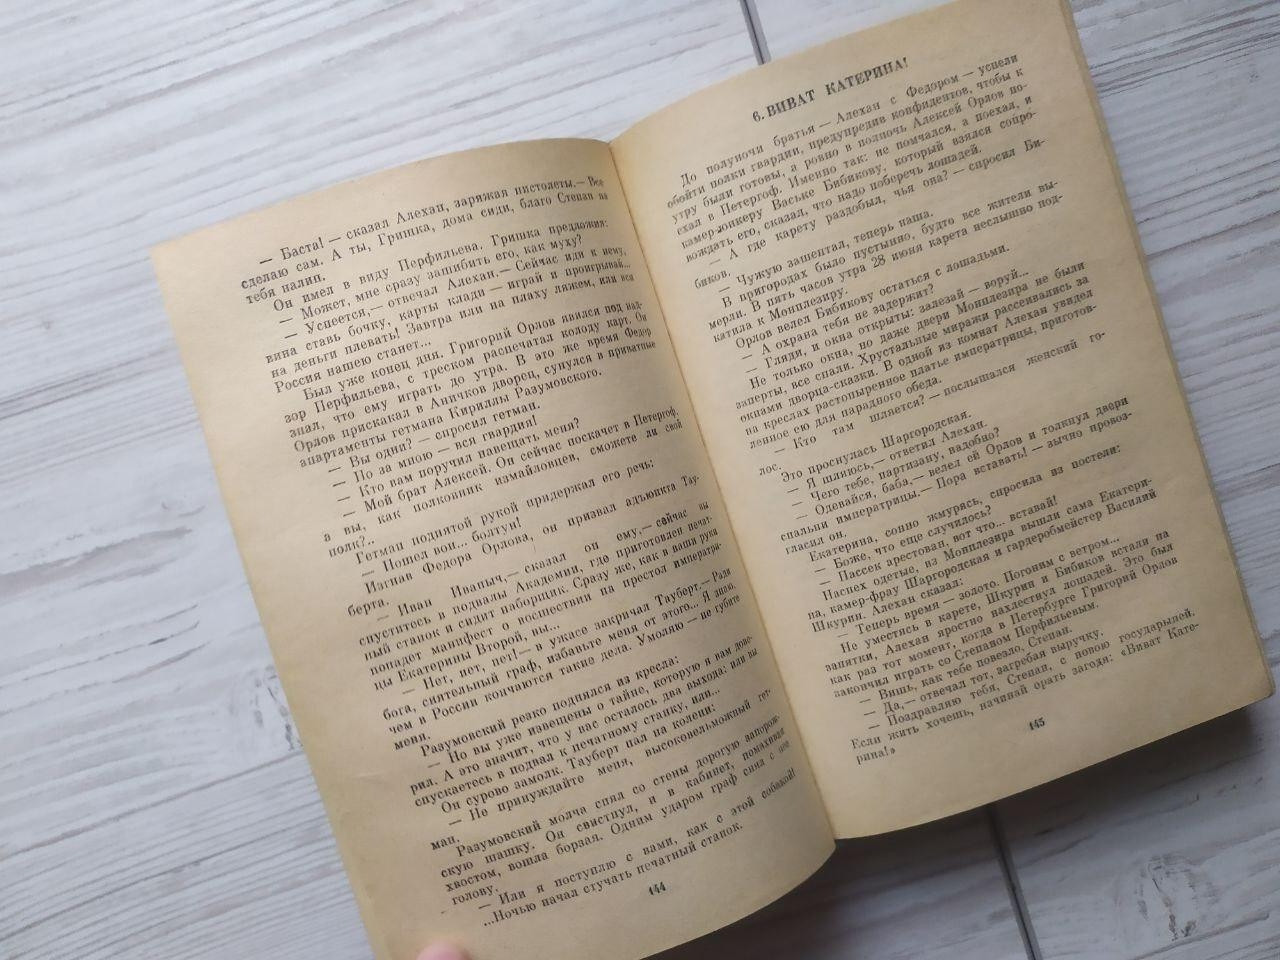 — Баста! — сказал Алехан, заряжая пистолеты.— Все
сделаю сам. А ты, Гришка, дома сиди, благо Степан на
тебя налип.
Он имел в виду Перфильева. Гришка предложил:
— Может, мне сразу зашибить его, как муху?
— Успеется,— отвечал Алехан.— Сейчас иди к нему,
вина ставь бочку, карты клади — играй и проигрывай...
на деньги плевать! Завтра или на плаху ляжем, или вся
Россия нашею станет...
Был уже конец дня. Григорий Орлов явился под над-
зор Перфильева, с треском распечатал колоду карт. Он
знал, что ему играть до утра. В это же время Федор
Орлов прискакал в Аничков дворец, сунулся в приватные
апартаменты гетмана Кириллы Разумовского.
— Вы один? — спросил гетман.
— Но за мною — вся гвардия!
— Кто вам поручил навещать меня?
— Мой брат Алексей. Он сейчас поскачет в Петергоф,
а вы, как полковник измайловцев, сможете ли свой
полк?..
Гетман поднятой рукой придержал его речь:
— Пошел вон... болтун!
Изгнав Федора Орлова, он призвал адъюнкта Тау-
берта.
— Иван Иваныч,— сказал он ему,— сейчас вы
спуститесь в подвалы Академии, где приготовлен печат-
ный станок и сидит наборщик. Сразу же, как в ваши руки
попадет манифест о восшествии на престол императри-
цы Екатерины Второй, вы...
— Нет, нет, нет!— в ужасе закричал Тауберт.— Ради
бога, сиятельный граф, избавьте меня от этого... Я знаю,
чем в России кончаются такие дела. Умоляю — не губите
меня.
Разумовский резко поднялся из кресла:
— Но вы уже извещены о тайне, которую я вам дове-
рил. А это значит, что у вас осталось два выхода: или вы
спускаетесь в подвал к печатному станку, или...
Он сурово замолк. Тауберт пал на колени:
— Не принуждайте меня, высоковельможный гет-
ман.
Разумовский молча снял со стены дорогую запорож-
скую шашку. Он свистнул, и в кабинет, помахивая
хвостом, вошла борзая. Одним ударом граф снял с нее
голову.
— Или я поступлю с вами, как с этой собакой!
...Ночью начал стучать печатный станок.
144
6. ВИВАТ КАТЕРИНА!
До полуночи братья — Алехан с Федором — успели
обойти полки гвардии, предупредив конфидентов, чтобы к
утру были готовы, а ровно в полночь Алексей Орлов по-
ехал в Петергоф. Именно так: не помчался, а поехал, и
камер-юнкеру Ваське Бибикову, который взялся сопро-
вождать его, сказал, что надо поберечь лошадей.
— А где карету раздобыл, чья она? — спросил Би-
биков.
— Чужую зашептал, теперь наша.
В пригородах было пустынно, будто все жители вы-
мерли. В пять часов утра 28 июня карета неслышно под-
катила к Монплезиру.
Орлов велел Бибикову остаться с лошадьми.
— А охрана тебя не задержит?
— Гляди, и окна открыты: залезай — воруй...
Не только окна, но даже двери Монплезира не были
заперты, все спали. Хрустальные миражи рассеивались за
окнами дворца-сказки. В одной из комнат Алехан увидел
на креслах растопыренное платье императрицы, приготов-
ленное ею для парадного обеда.
— Кто там шляется? — послышался женский го-
лос.
Это проснулась Шаргородская.
— Я шляюсь,— ответил Алехан.
— Чего тебе, партизану, надобно?
— Одевайся, баба,— велел ей Орлов и толкнул двери
спальни императрицы.— Пора вставать! — зычно провоз-
гласил он.
Екатерина, сонно жмурясь, спросила из постели:
— Боже, что еще случилось?
— Пассек арестован, вот что... вставай!
Наспех одетые, из Монплезира вышли сама Екатери-
на, камер-фрау Шаргородская и гардеробмейстер Василий
Шкурин. Алехан сказал:
— Теперь время — золото. Погоним с ветром...
Не уместись в карете, Шкурин и Бибиков встали на
запятки, Алехан яростно нахлестнул лошадей. Это был
как раз тот момент, когда в Петербурге Григорий Орлов
закончил играть со Степаном Перфильевым.
— Вишь, как тебе повезло, Степан.
— Да,— отвечал тот, загребая выручку.
— Поздравляю тебя, Степан, с новою государыней.
Если жить хочешь, начинай орать загодя: «Виват Кате-
рина!»
145